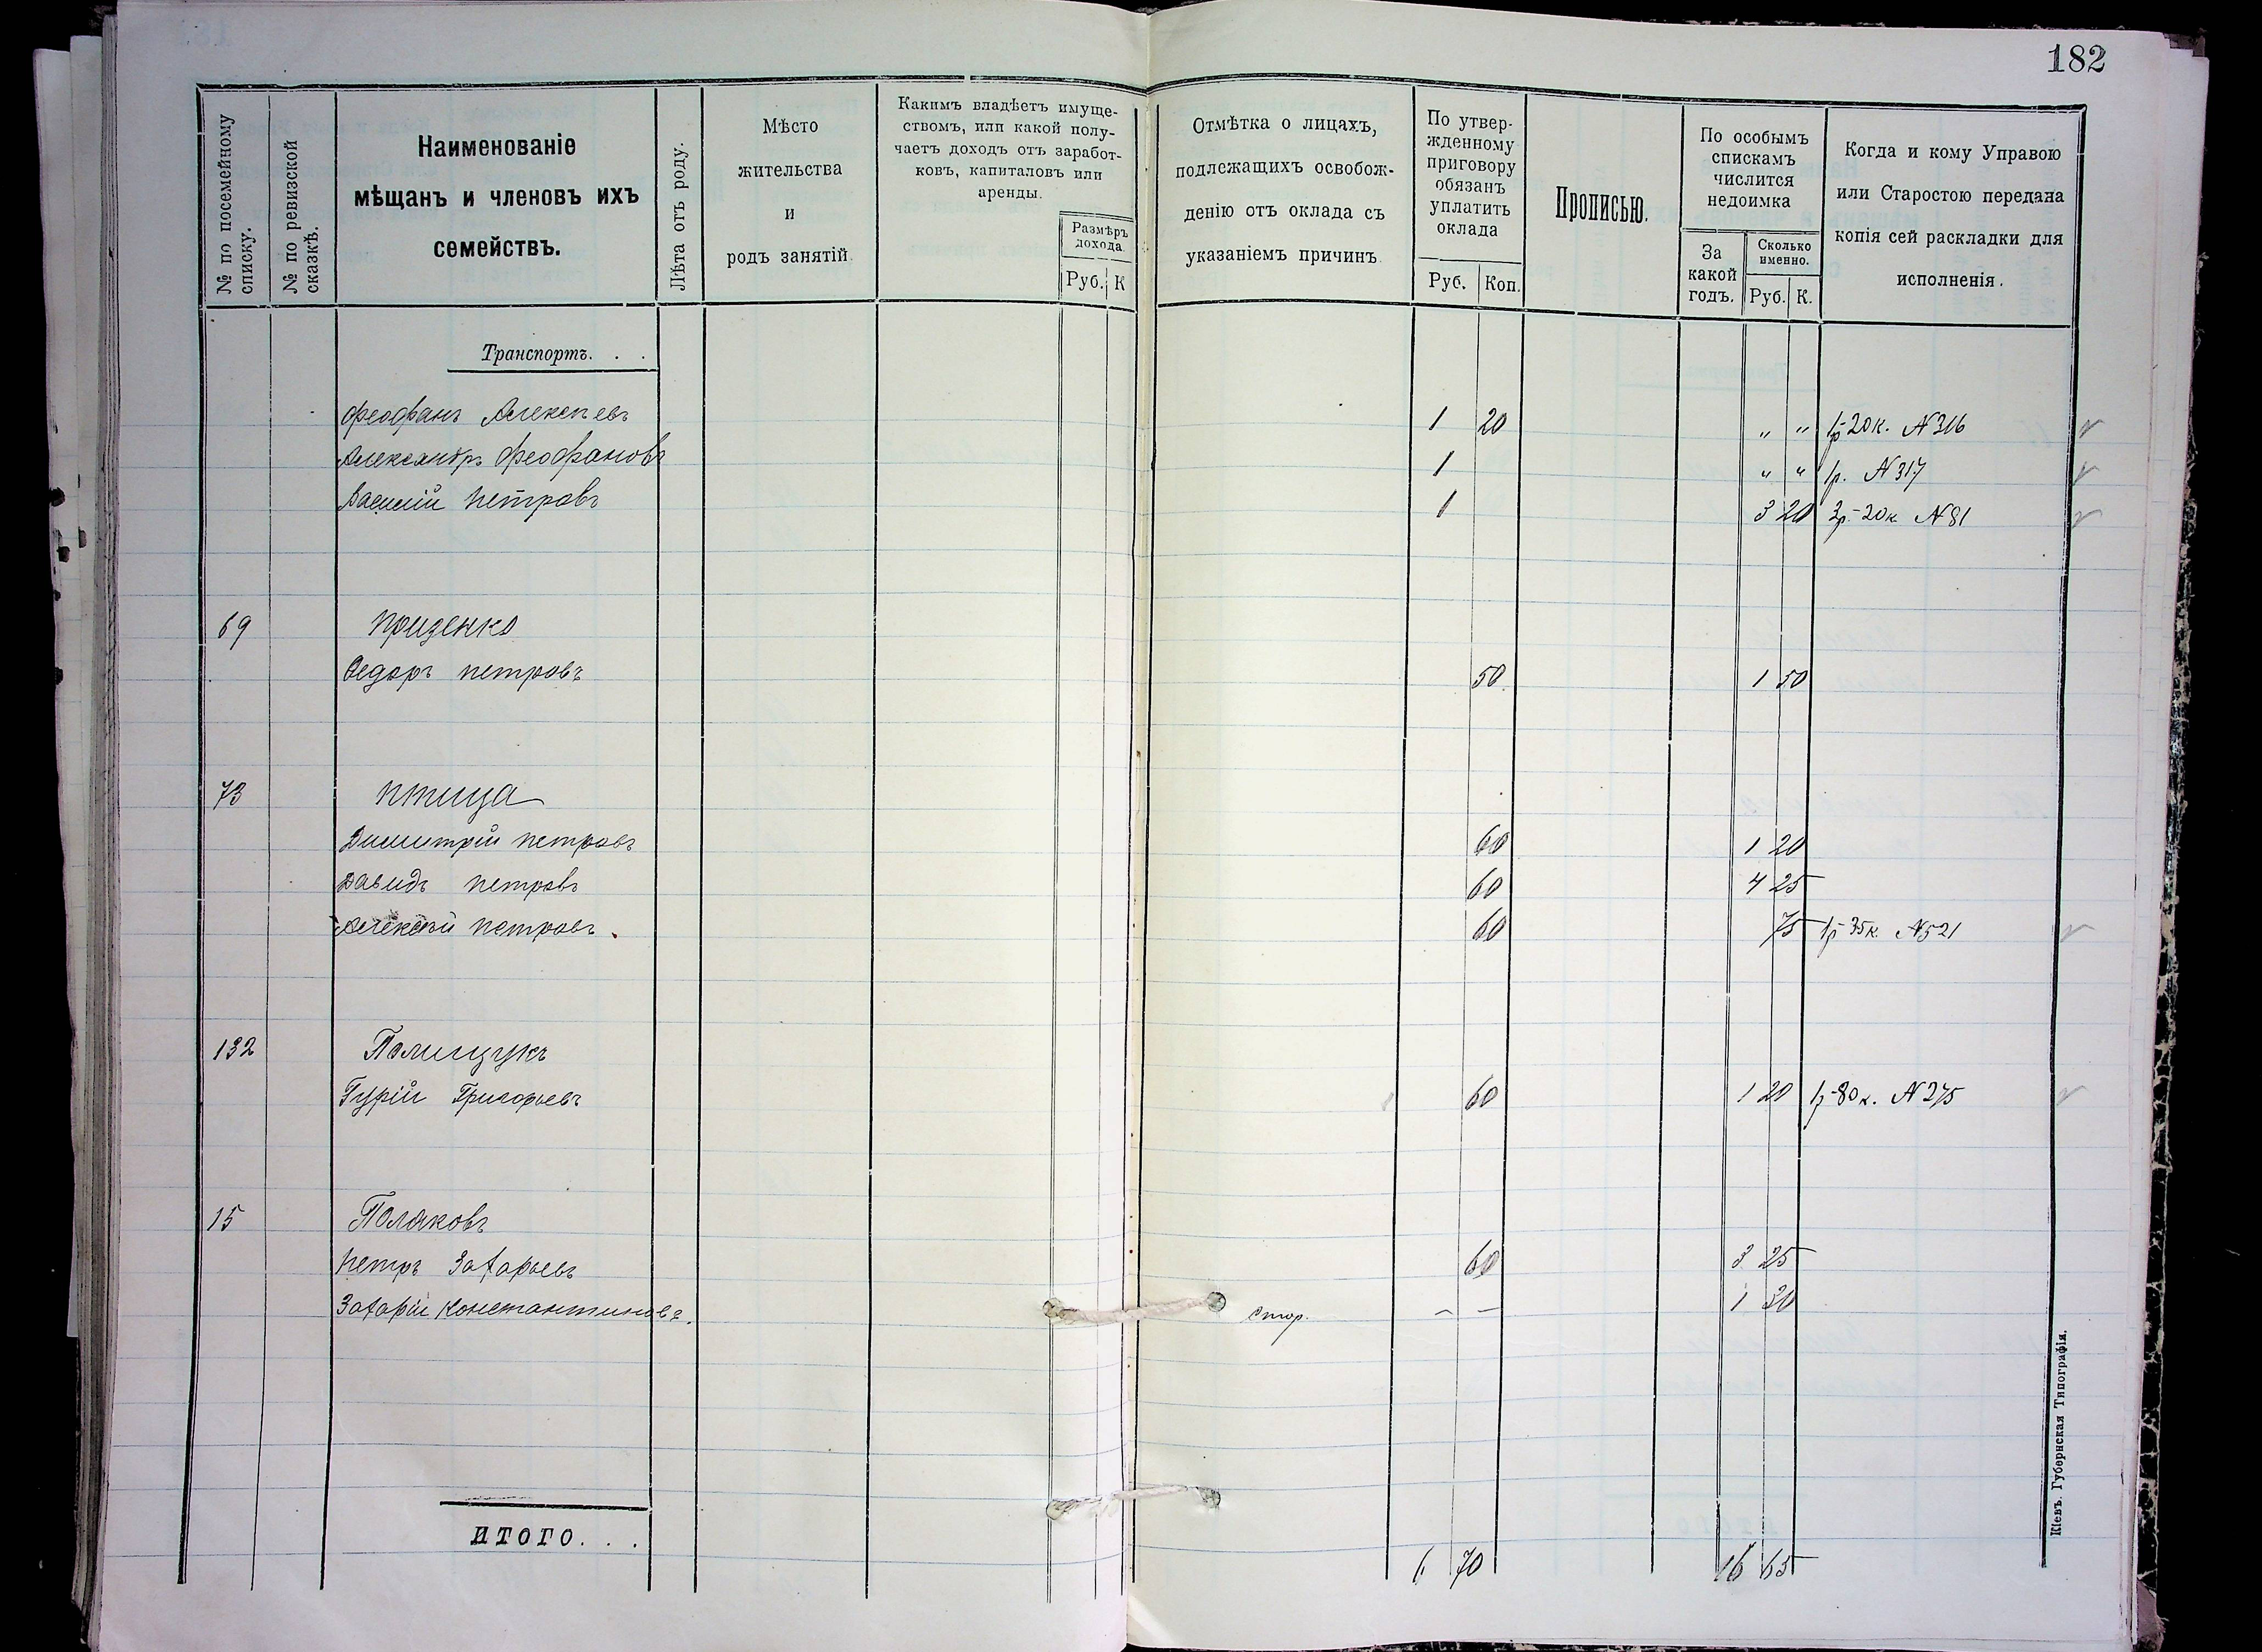 182
№ по посемейному списку.
№ по ревизской сказкѣ.
Наименованіе
мѣщанъ и членовъ ихъ
семействъ.
Лѣта отъ роду.
Мѣсто
жительства
и
родъ занятій.
Какимъ владѣетъ имуще-
ствомъ, или какой полу-
чаетъ доходъ отъ заработ-
ковъ, капиталовъ или
аренды.
Размѣръ
дохода.
Руб. К
Отмѣтка о лицахъ,
подлежащихъ освобож-
денію отъ оклада съ
указаніемъ причинъ
По утвер-
жденному
приговору
обязанъ
уплатить
оклада
Руб. Коп.
Прописью.
По особымъ
спискамъ
числится
недоимка
За
какой
годъ.
Сколько
именно.
Руб. К.
Когда и кому Управою
или Старостою передана
копія сей раскладки для
исполненія.
Транспортъ. . .
Феофанъ Алексѣевъ 1 20 " " 1р 20к. №316
Александръ Феофановъ 1 " " 1р. №317
Василій Петровъ 1 3 20 3р-20к №81
69 Приценко
Федоръ Петровъ 50 1 50
73 Птица
Димитрій Петровъ 60 1 20
Давидъ Петровъ 60 4 25
Алексѣй Петровъ. 60 75 1р 35к. №521
132 Полищукъ
Гурій Григорьевъ 60 1 20 1р-80к. №275
15 Поляковъ
Петръ Захарьевъ 60 3 25
Захарій Константиновъ. стар. – – 1 30
ИТОГО. . . 6 70 16 65
Кіевъ. Губернская Типографія.